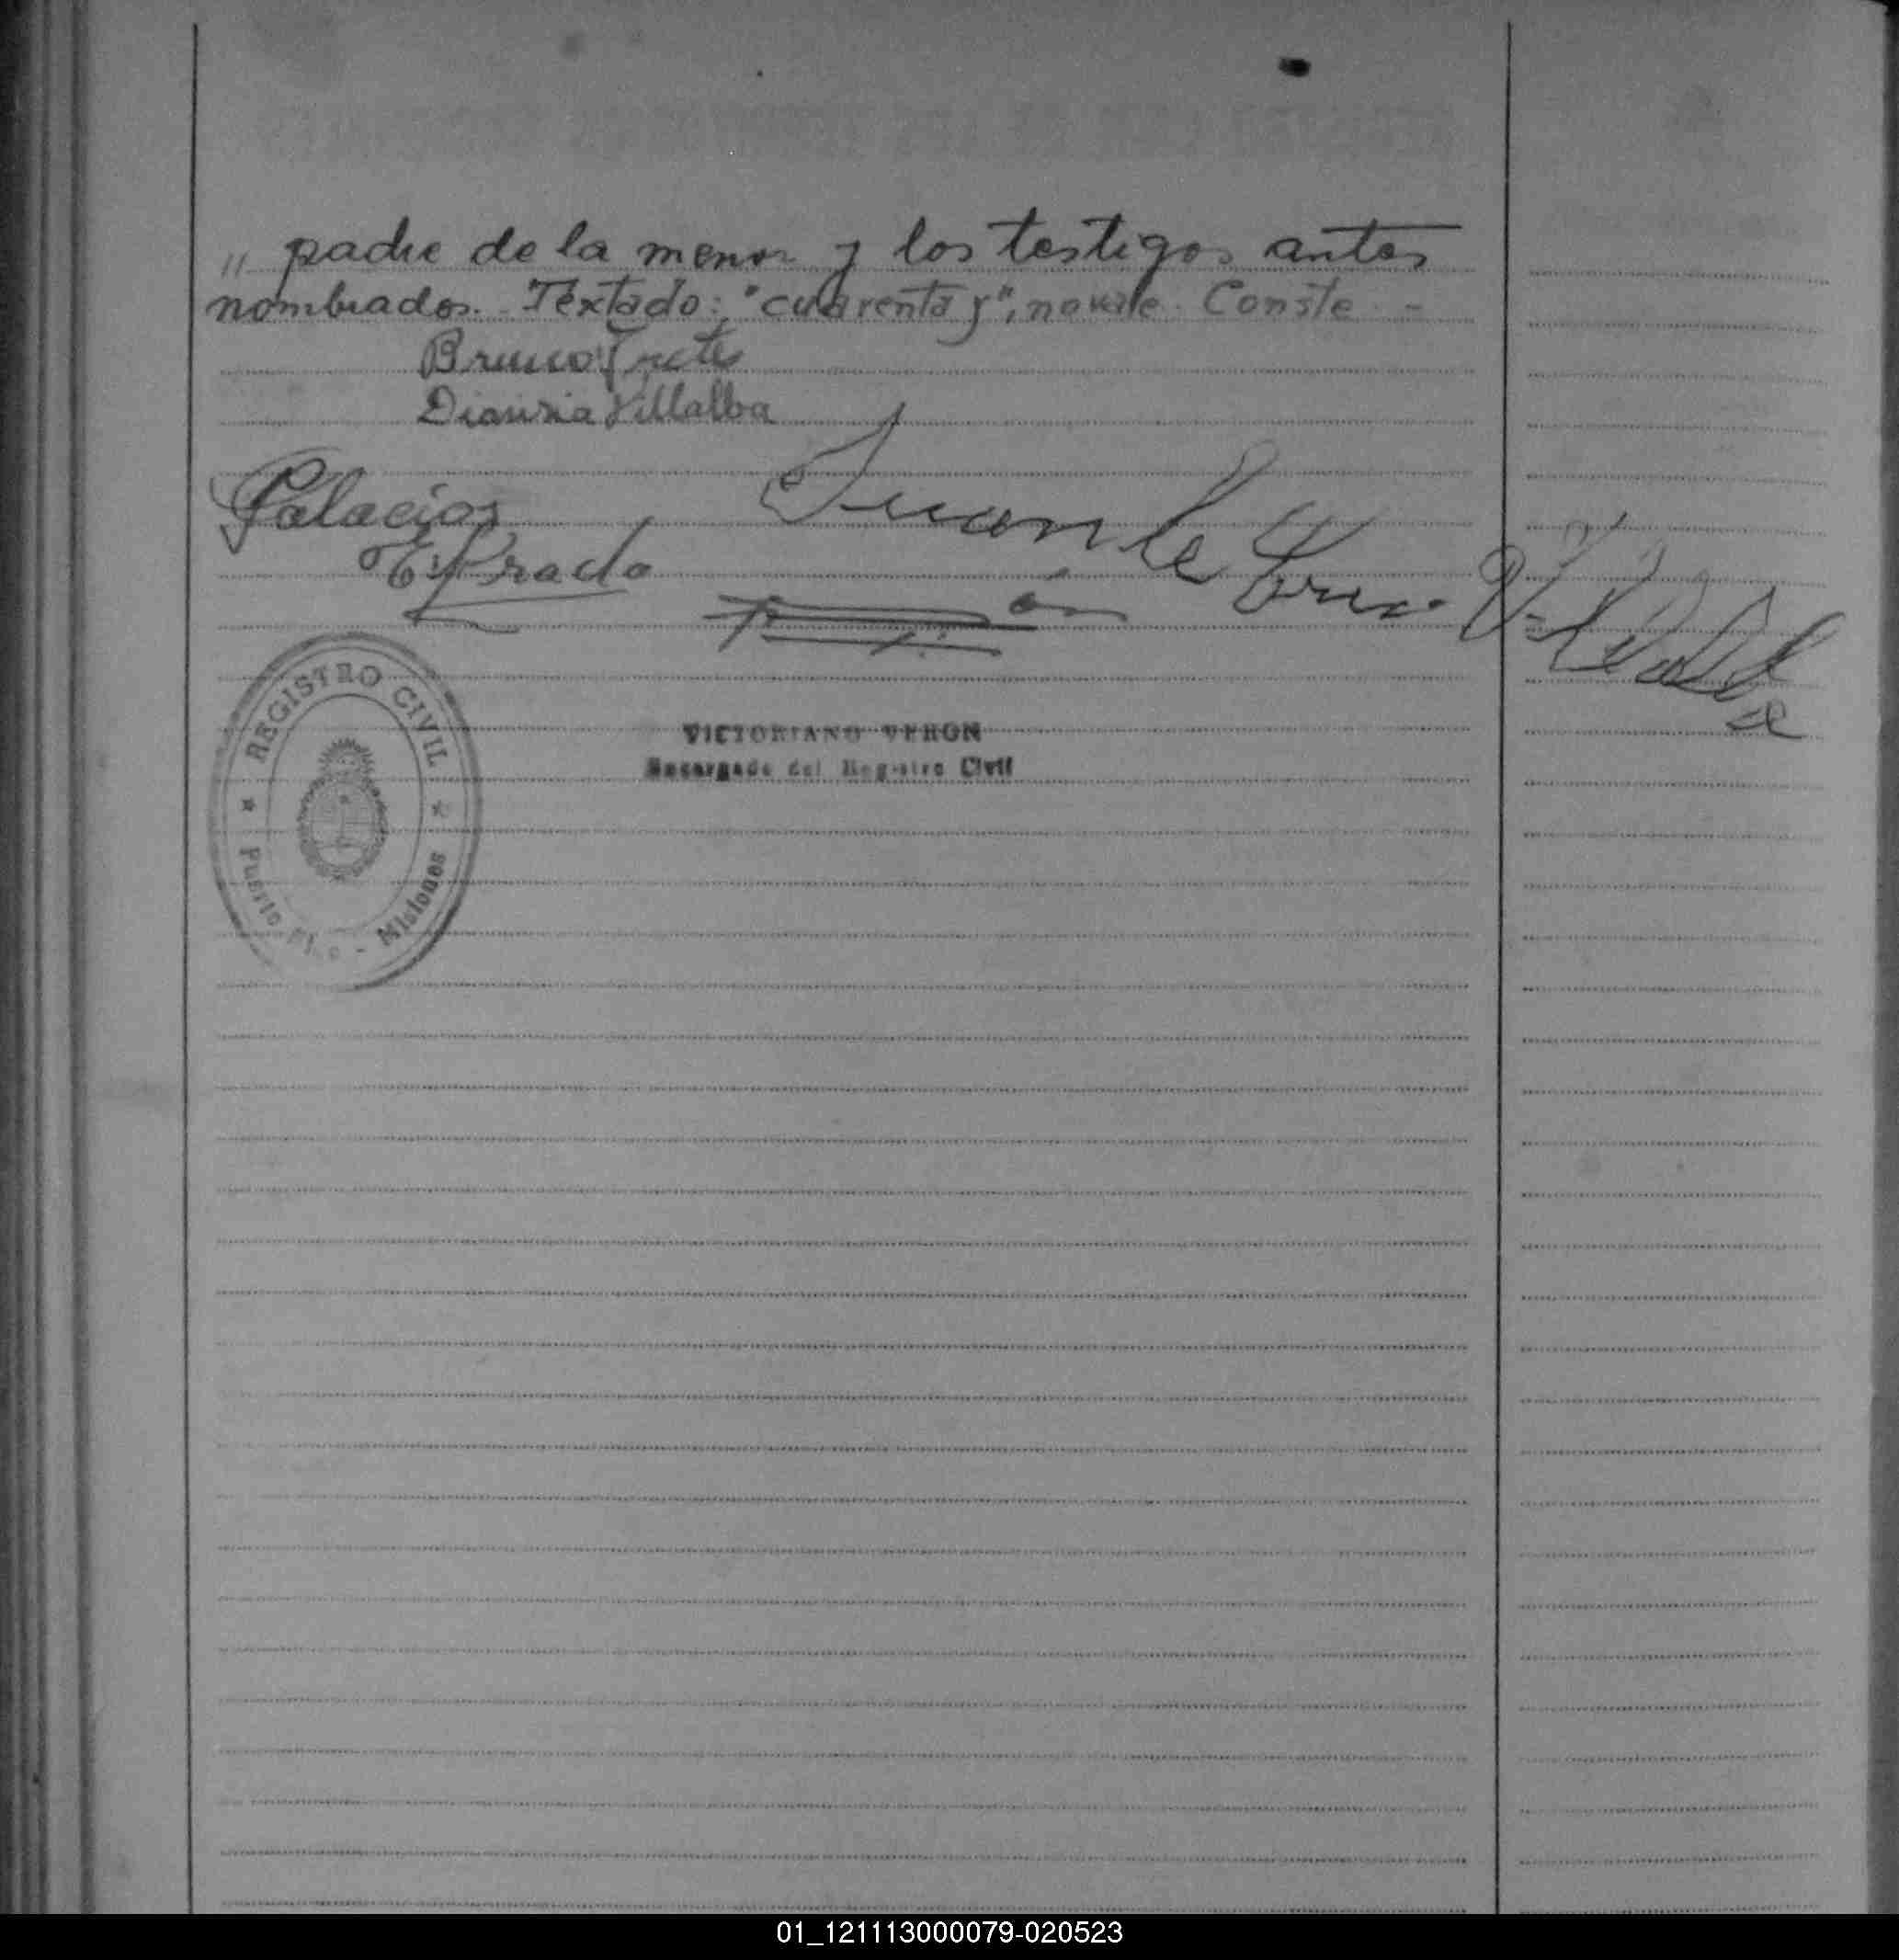 " padre de la menor y los testigos antes
nombrados. - Textado: "cuarenta y", no vale. Conste -
Bruno
Dionisia Villalba
Palacios
Prado
Juan
VICTORIANO VERON
Encargado del Registro Civil
REGISTRO CIVIL
Puerto - Misiones
01_121113000079-020523